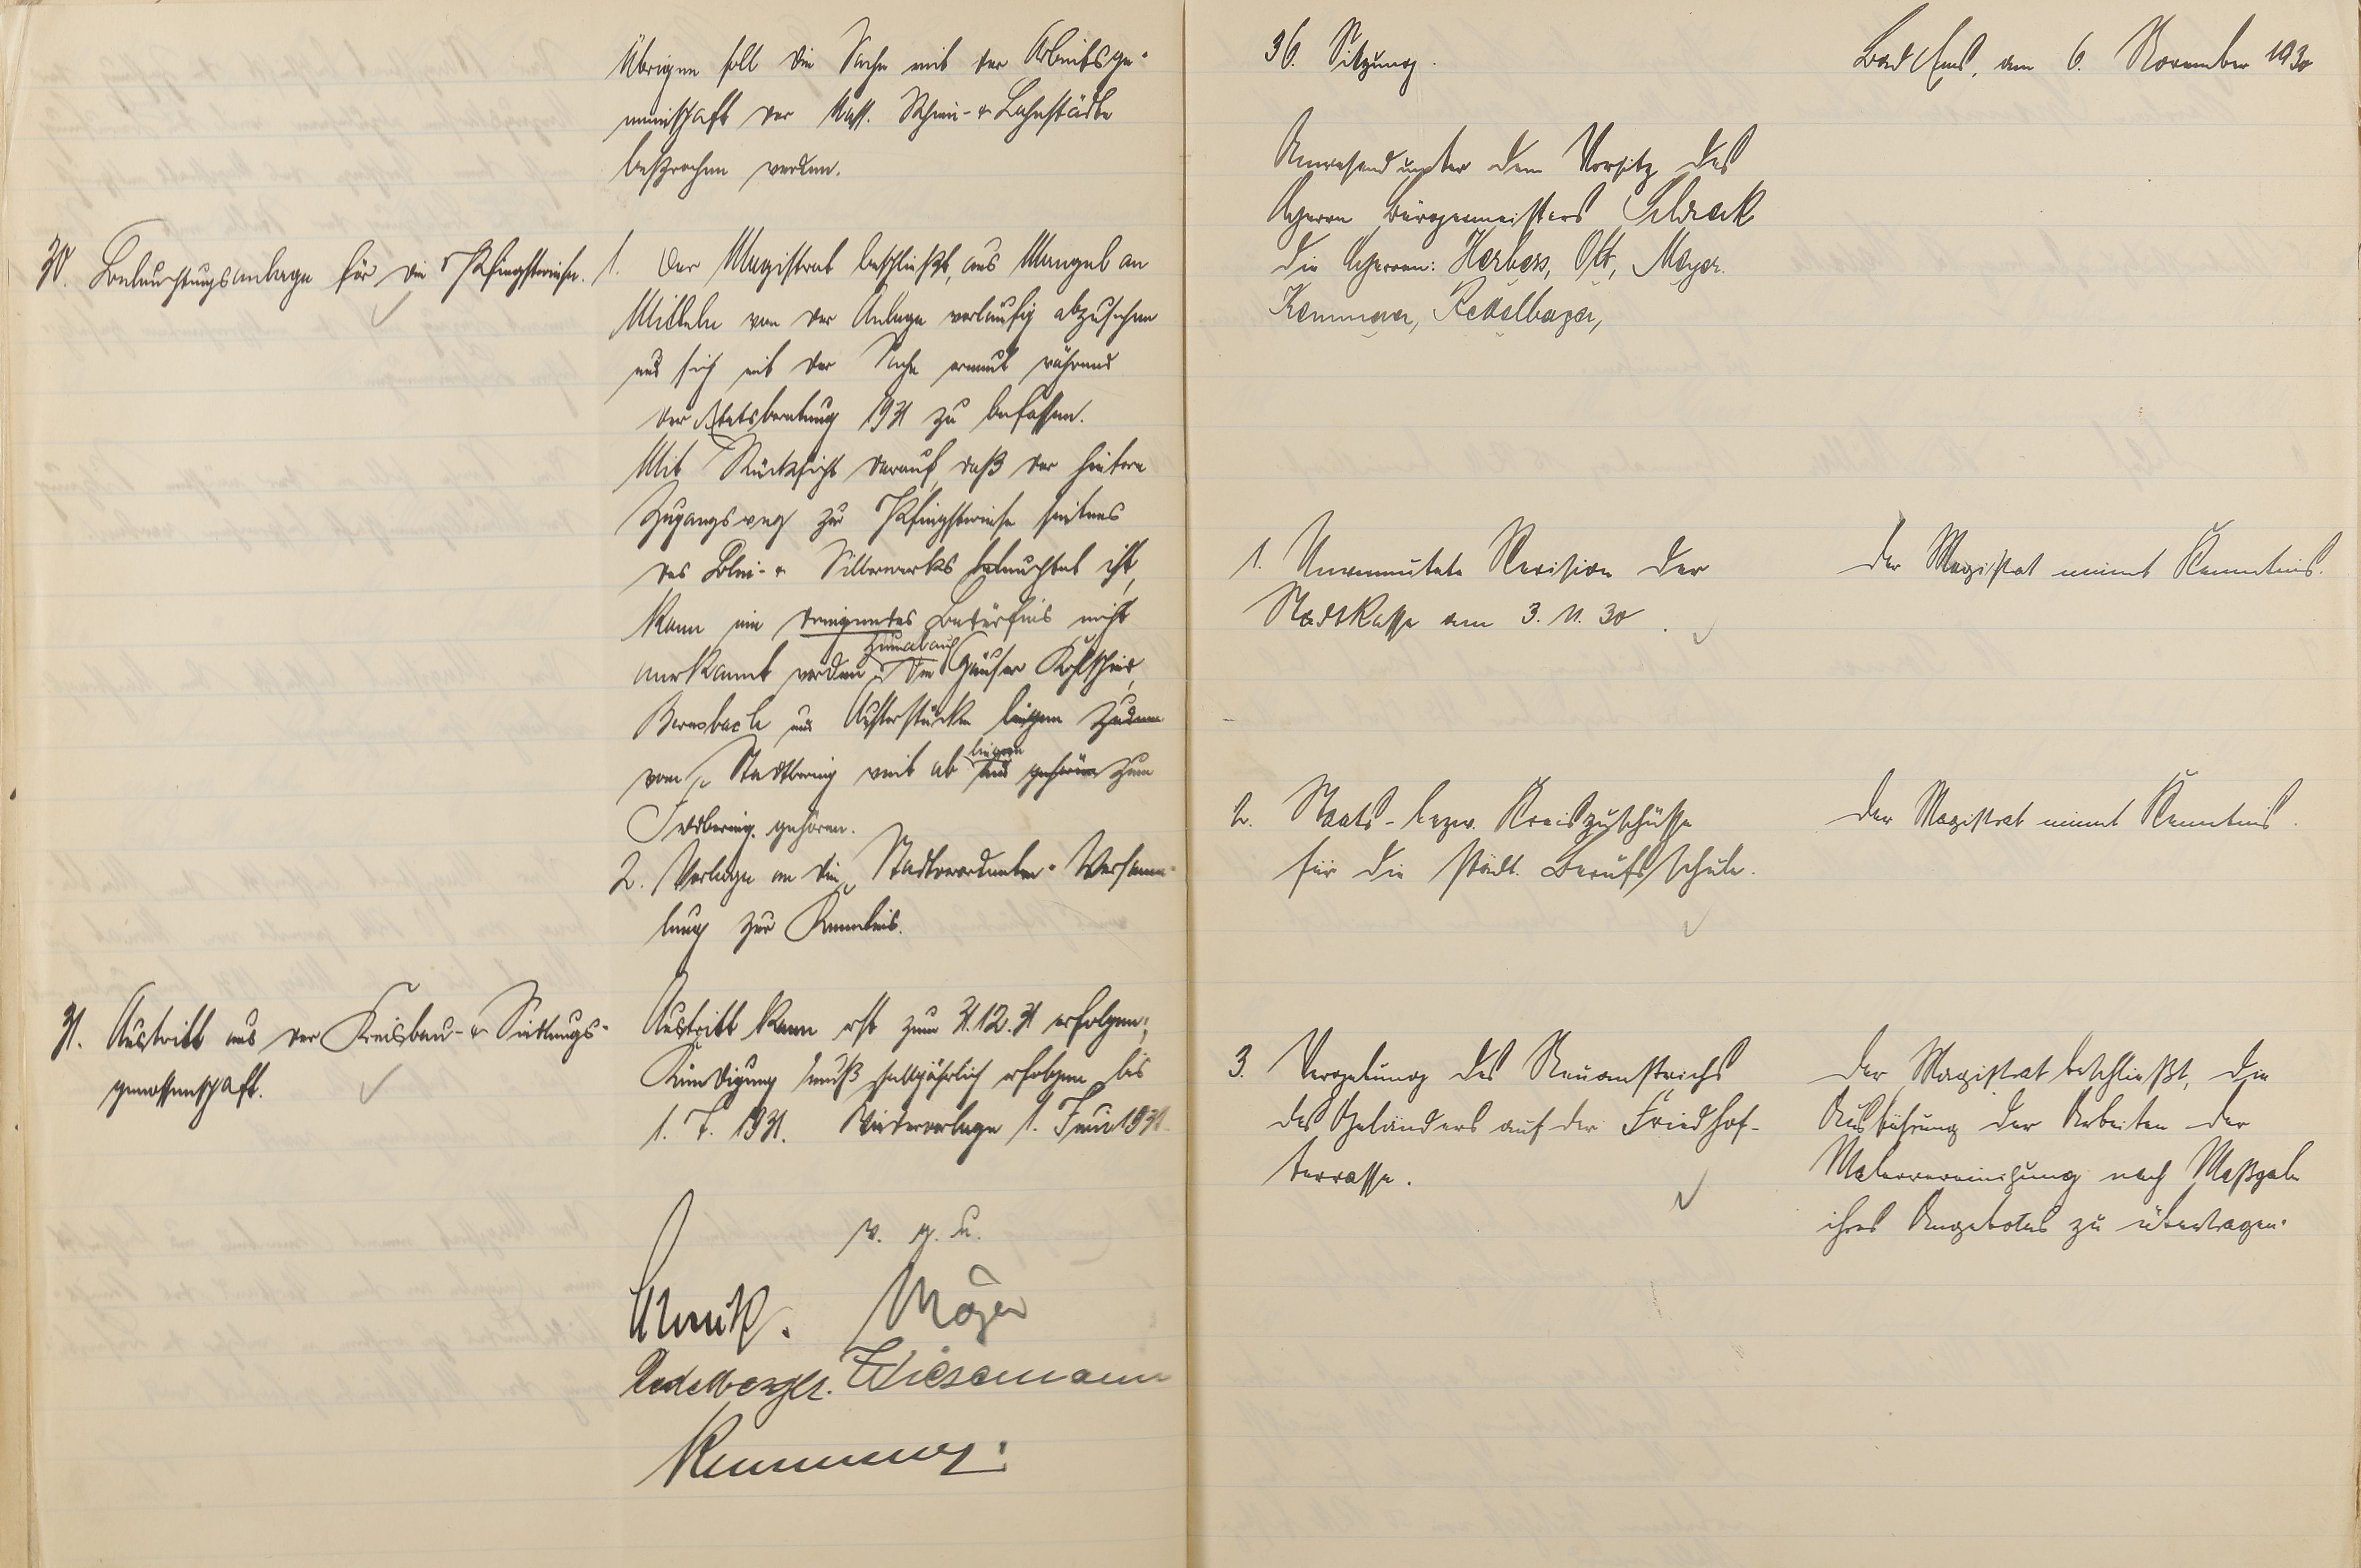 Übrigen soll die Sache mit der Arbeitsge-
meinschaft der Nass. Rhein- & Lahnstädte
besprochen werden.
30. Beleuchtungsanlage für die Pfingstwiese.
1. Der Magistrat beschließt, aus Mangel an
Mitteln von der Anlage vorläufig abzusehen
und sich mit der Sache erneut während
der Etatsberatung 1931 zu befassen.
Mit Rücksicht darauf, daß der hintere
Zugangsweg zur Pfingstwiese seitens
des Blei- & Silberwerks beleuchtet ist,
kann ein dringendes Bedürfnis nicht
zumal auch
anerkannt werden, die Häuser
Bernbach und liegen zudem
liegen
vom Stadtbering weit ab und gehören zum
Feldbering gehören.
2. Vorlage an die Stadtverordneten-Versamm-
lung zur Kenntnis.
31. Austritt aus der Kreisbau- & Siedlungs-
genossenschaft.
Austritt kann erst zum 31.12.31 erfolgen;
Kündigung muß halbjährlich erfolgen bis
1. 7. 1931. Wiedervorlage 1. Juni 1931.
v. g. u.
Meyer
Wiesemann
Kemmerer
36. Sitzung.
Bad Ems, am 6. November 1930
Anwesend unter dem Vorsitz des
Herrn Bürgermeisters
die Herren: Herbers, Ott, Meyer.
Kemmerer,
1. Unvermutete Revision der
Stadtkasse am 3. 11. 30.
Der Magistrat nimmt Kenntnis.
2. Staats- bezw. Kreiszuschüsse
für die städt. Berufsschule.
Der Magistrat nimmt Kenntnis.
3. Vergebung des Neuanstrichs
des Geländers auf der Friedhof-
terrasse.
Der Magistrat beschließt, die
Ausführung der Arbeiten der
Malervereinigung nach Maßgabe
ihres Angebotes zu übertragen.